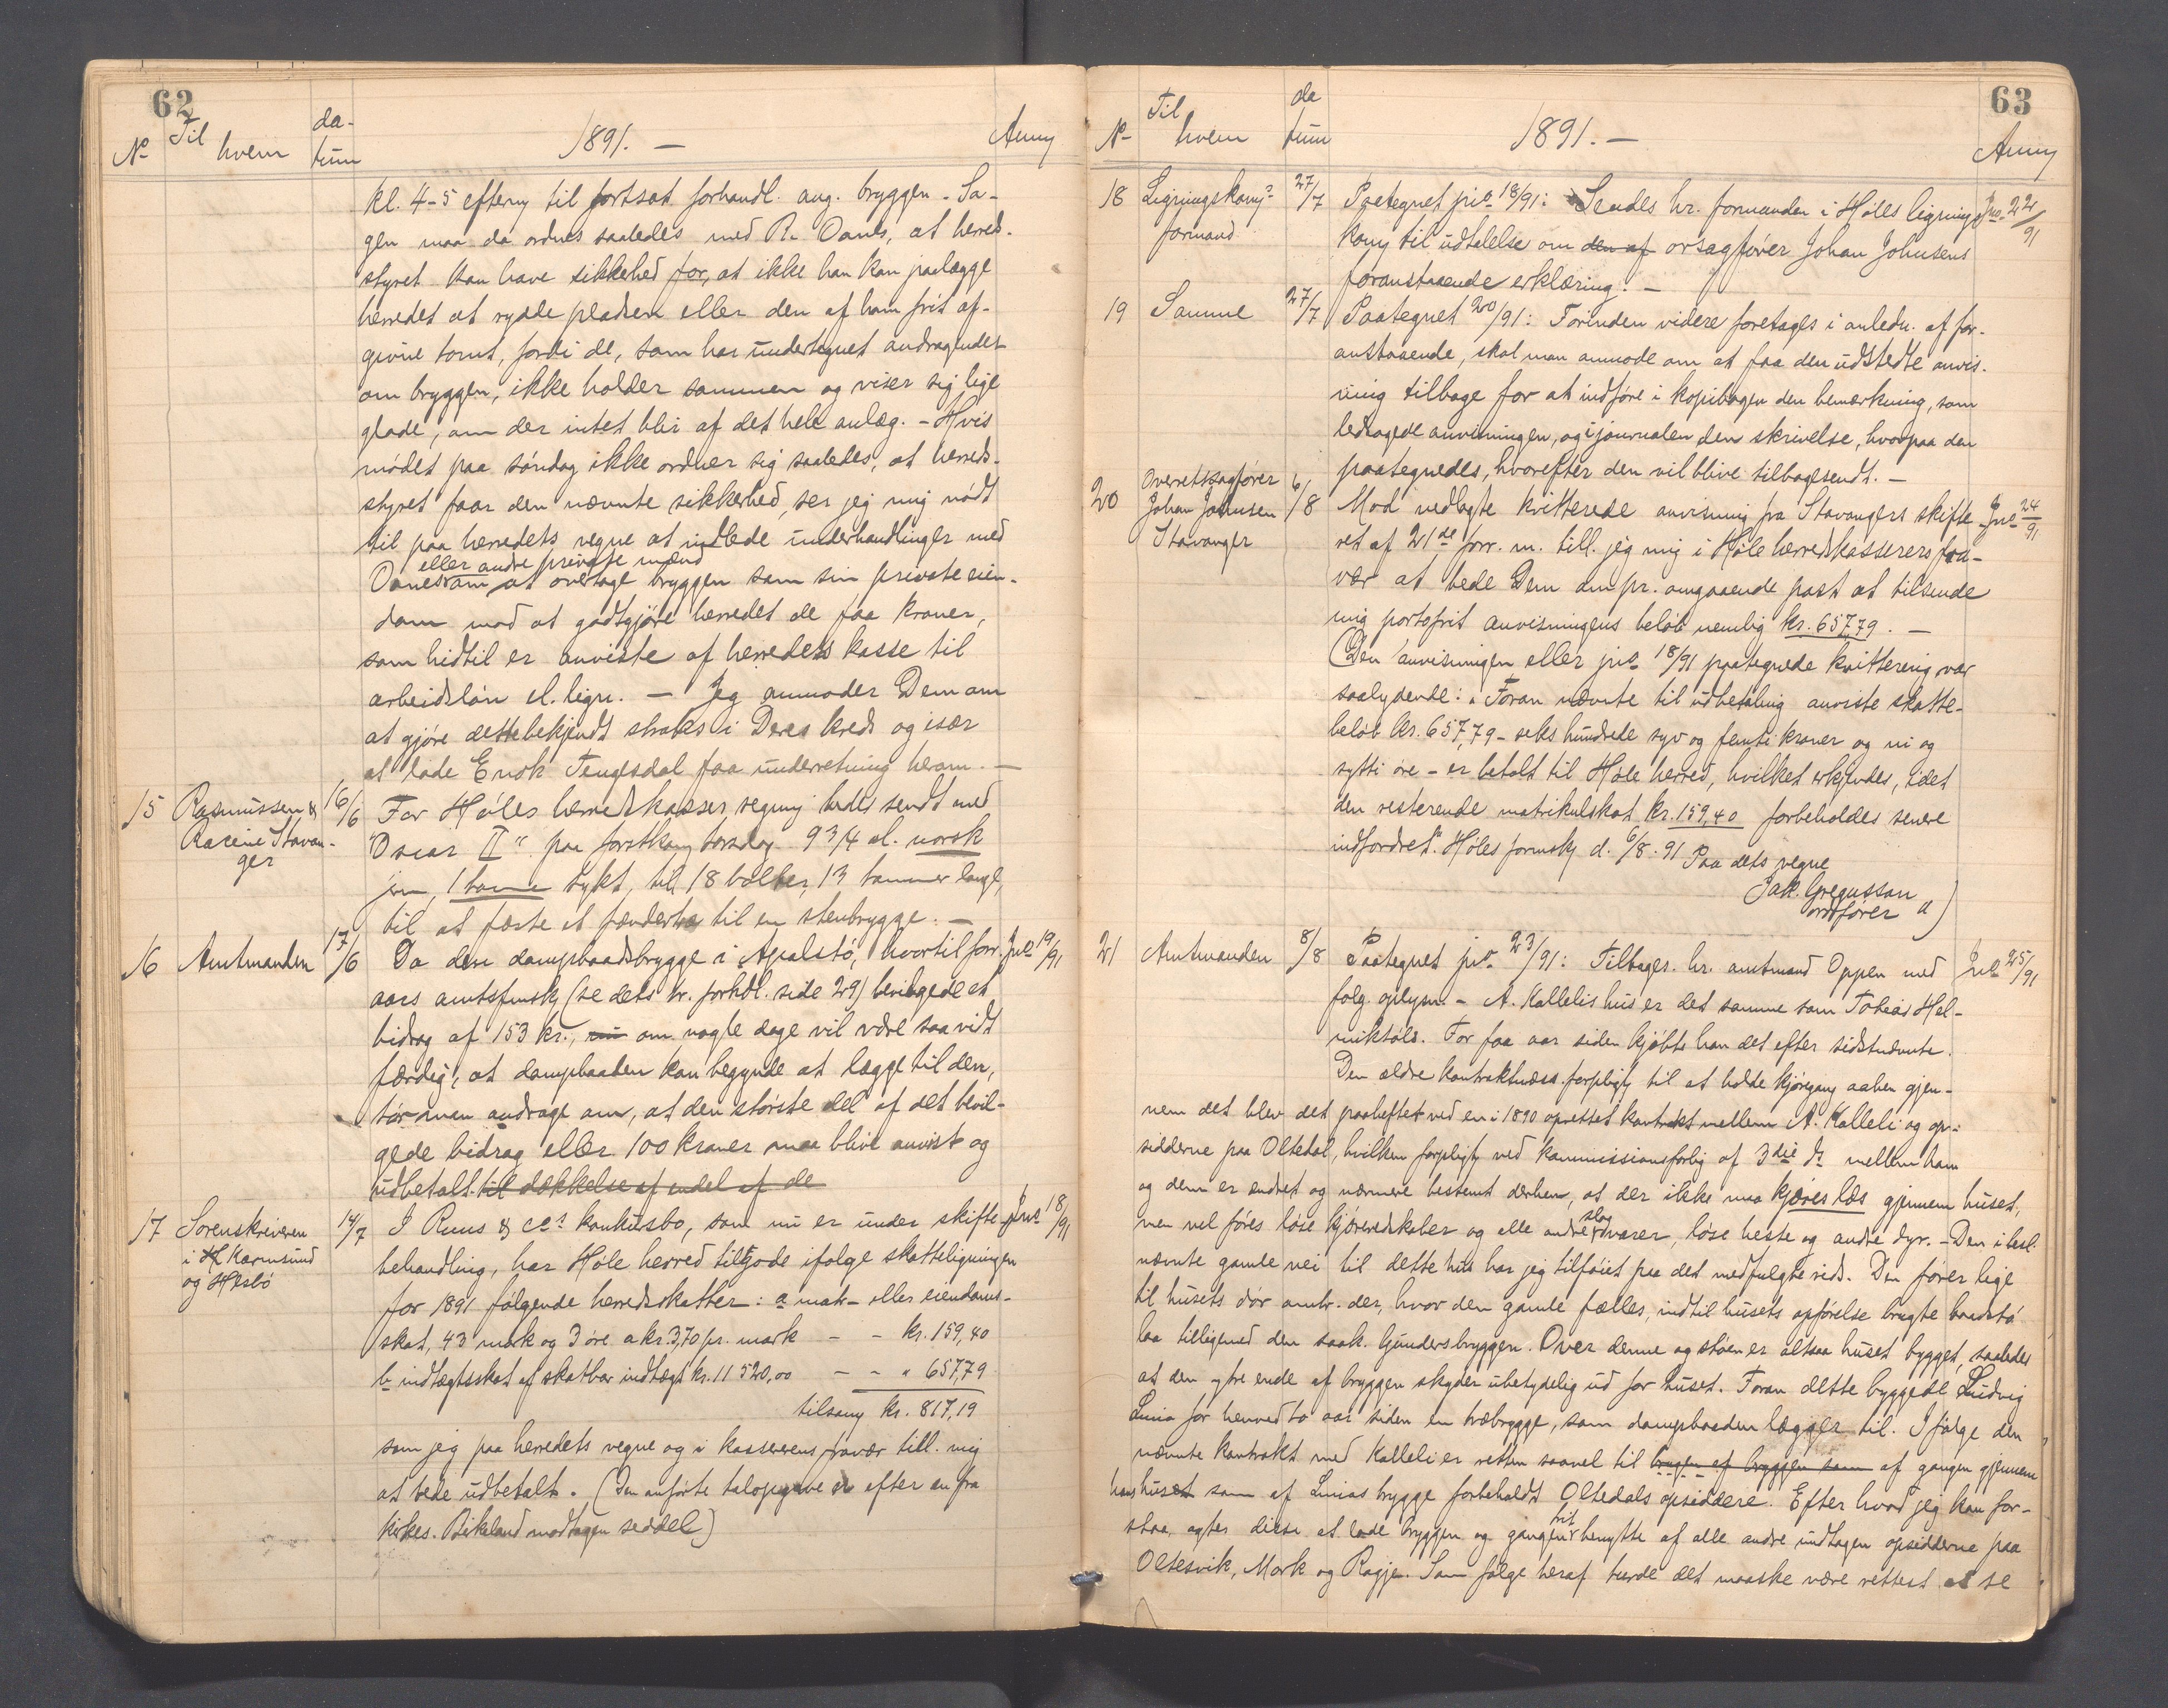 62
No Til hvem da-tum 1891. — Anm
kl. 4-5 efterm til fortsat forhandl. ang. bryggen. Sa-
gen maa da ordnes saaledes med R. Oanes, at herreds-
styret kan have sikkerhed for, at ikke han kan paalægge
herredet at rydde pladsen eller den af ham frit af-
givne tomt, fordi de, som har undertegnet andragendet
om bryggen, ikke holder sammen og viser sig lige
glade, om der intet blir af det hele anlæg. – Hvis
mødet paa søndag ikke ordner sig saaledes, at herreds-
styret faar den nævnte sikkerhed, ser jeg mig nødt
til paa herredets vegne at indlede underhandlinger med
eller andre private mænd
Oanes om at overtage bryggen som sin private eien-
dom mod at godtgjøre herredet de faa kroner,
som hidtil er anviste af herredets kasse til
arbeidsløn el. lign. — Jeg anmoder Dem om
at gjøre dette bekjendt straks i Deres kreds og især
at lade Enok Tengesdal faa underretning herom. —
15 Rasmussen & Racine Stavan-ger 16/6 For Høles herredskasses regning bedes sendt med
"Oscar II" paa førstkom torsdag 9 3/4 al. norsk
jern, 1 tomme tykt, til 18 bolter, 13 tommer lange,
til at fæste et fendertræ til en stenbrygge. —
16 Amtmanden 17/6 Da den dampbaadsbrygge i Apalstø, hvortil forr. Jno 19/91
aars amtsfmsk (se dets tr. forhdl. side 29) bevilgede et
bidrag af 153 kr., nu om nogle dage vil være saavidt
færdig, at dampbaaden kan begynde at lægge til den,
tør man andrage om, at den største del af det bevil-
gede bidrag eller 100 kroner maa blive anvist og
udbetalt til dækkelse af endel af de
17 Sorenskriveren i H Karmsund og Hesbø 14/7 I Ruus & co's konkursbo, som nu er under skifte- Jno 18/91
behandling, har Høle herred tilgode ifølge skatteligningen
for 1891 følgende herredsskatter: a matr- eller eiendoms-
skat, 43 mark og 3 øre a kr. 3,70 pr. mark – – kr. 159,40
b indtægtsskat af skatbar indtægt kr. 11 520,00 – – " 657,79
tilsam kr. 817,19
som jeg paa herredets vegne og i kassererens fravær till. mig
at bede udbetalt. (Den anførte talopgave er efter en fra
kirkes. Birkeland modtagen seddel)
63
No Til hvem da tum 1891. — Anm
18 Ligningskom's formand 27/7 Paategnet jno 18/91: Sendes hr. formanden i Høles lignings Jno 22/91
kom til udtalelse om den af orsagfører Johan Johnsens
foranstaaende erklæring. —
19 Samme 27/7 Paategnet 20/91: Forinden videre foretages i anledn. af for-
anstaaende, skal man anmode om at faa den udstedte anvis-
ning tilbage for at indføre i kopibogen den bemærkning, som
ledsagede anvisningen, og i journalen den skrivelse, hvorpaa den
paategnedes, hvorefter den vil blive tilbagesendt. —
20 Overretssagfører Johan Johnsen Stavanger 6/8 Mod vedlagte kvitterede anvisning fra Stavangers skifte- Jno 24/91
ret af 21de forr. m. till. jeg mig i Høle herredskasserers fra-
vær at bede Dem om pr. omgaaende post at tilsende
mig portofrit anvisningens beløb nemlig kr. 657,79. —
(Den anvisningen eller jno 18/91 paategnede kvittering var
saalydende: "Foran nævnte til udbetaling anviste skatte-
beløb kr. 657,79 – seks hundrede syv og femti kroner og ni og
sytti øre – er betalt til Høle herred, hvilket erkjendes, idet
den resterende matrikulskat kr. 159,40 forbeholdes senere
indfordret. Høles formsk. d. 6/8. 91 Paa dets vegne
Jak. Gregussøn
ordfører ")
21 Amtmanden 8/8 Paategnet jno 23/91: Tilbages. hr. amtmand Oppen med Jno 25/91
følg. oplysn. – A. Kallelis hus er det samme som Tobias Hel-
mikstøls. For faa aar siden kjøbte han det efter sidstnævnte.
Den ældre kontraktmæss. forpligt. til at holde kjøregang aaben gjen-
nem det blev det paaheftet ved en i 1890 oprettet kontrakt mellem A. Kalleli og op-
sidderne paa Oltedal, hvilken forpligt. ved kommissionsforlig af 3die ds mellem ham
og dem er endret og nærmere bestemt derhen, at der ikke maa kjøres læs gjennem huset,
men vel føres løse kjøreredskaber og alle andre slag varer, løse heste og andre dyr. – Den i besl.
nævnte gamle vei til dette hus har jeg tilføiet paa det medfulgte rids. Den fører lige
til husets dør omtr. der, hvor den gamle fælles, indtil husets opførelse brugte baadstø
laa tilligemed den saak. Gundersbryggen. Over denne og støen er altsaa huset bygget, saaledes
at den ytre ende af bryggen skyder ubetydelig ud for huset. Foran dette byggede Ludvig
Lima for henved to aar siden en træbrygge, som dampbaaden lægger til. Ifølge den
nævnte kontrakt med Kalleli er retten saavel til brugen af bryggen som af gangen gjennem
hans huset som af Limas brygge forbeholdt Oltedals opsiddere. Efter hvad jeg kan for-
staa, agter disse at lade bryggen og gangen frit benytte af alle andre undtagen opsidderne paa
Oltesvik, Mork og Ragje. Som følge heraf turde det maaske være rettest at se